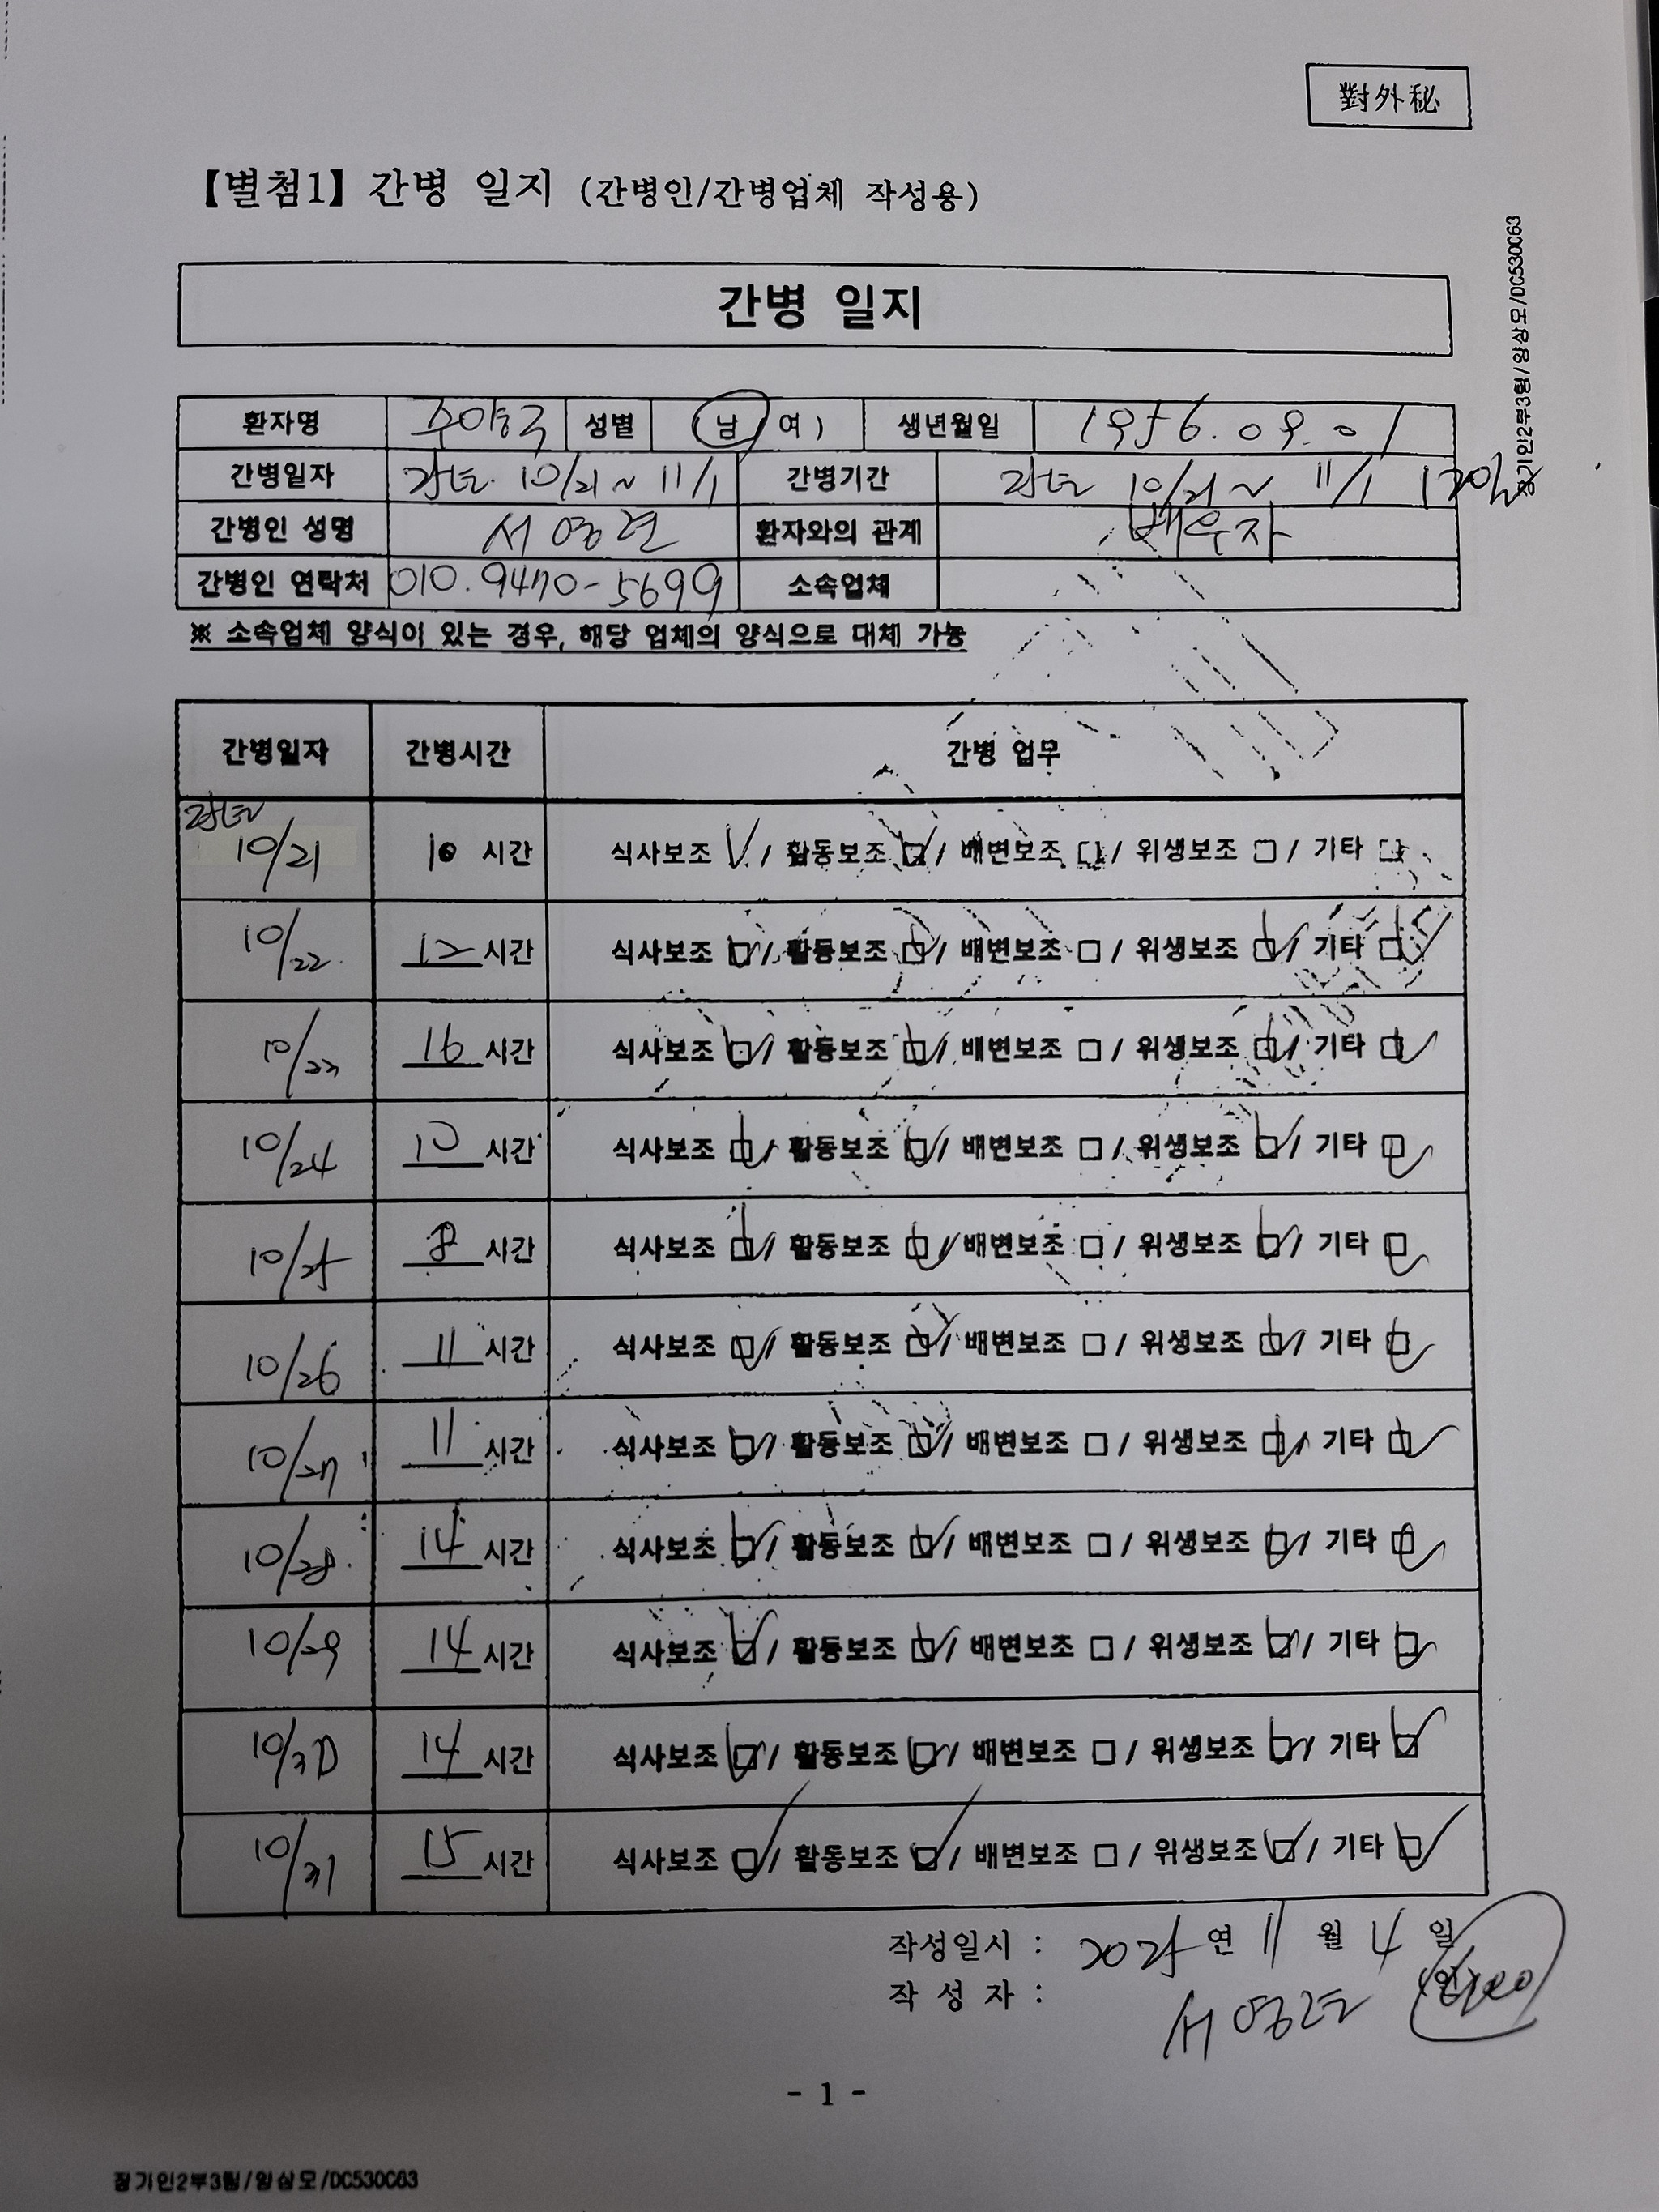 對外秘
【별첨1】 간병 일지 (간병인/간병업체 작성용)
장기인2부3팀/양상모/DC530C63
간병 일지
환자명 주양국 성별 남 여) 생년월일 1956.09.01
간병일자 작년 10/21 ~ 11/1 간병기간 작년 10/21 ~ 11/1
간병인 성명 서영련 환자와의 관계 배우자
간병인 연락처 010.9470-5699 소속업체
※ 소속업체 양식이 있는 경우, 해당 업체의 양식으로 대체 가능
간병일자 간병시간 간병 업무
작년
10/21 10 시간 식사보조 ✓ / 활동보조 ☑ / 배변보조 □ / 위생보조 □ / 기타 □
10/22 12 시간 식사보조 ☑ / 활동보조 ☑ / 배변보조 □ / 위생보조 ☑ / 기타 ☑
10/23 16 시간 식사보조 ☑ / 활동보조 ☑ / 배변보조 □ / 위생보조 ☑ / 기타 ☑
10/24 10 시간 식사보조 ☑ / 활동보조 ☑ / 배변보조 □ / 위생보조 ☑ / 기타 ☑
10/25 8 시간 식사보조 ☑ / 활동보조 ☑ / 배변보조 □ / 위생보조 ☑ / 기타 ☑
10/26 11 시간 식사보조 ☑ / 활동보조 ☑ / 배변보조 □ / 위생보조 ☑ / 기타 ☑
10/27 11 시간 식사보조 ☑ / 활동보조 ☑ / 배변보조 □ / 위생보조 ☑ / 기타 ☑
10/28 14 시간 식사보조 ☑ / 활동보조 ☑ / 배변보조 □ / 위생보조 ☑ / 기타 ☑
10/29 14 시간 식사보조 ☑ / 활동보조 ☑ / 배변보조 □ / 위생보조 ☑ / 기타 ☑
10/30 14 시간 식사보조 ☑ / 활동보조 ☑ / 배변보조 □ / 위생보조 ☑ / 기타 ☑
10/31 15 시간 식사보조 ☑ / 활동보조 ☑ / 배변보조 □ / 위생보조 ☑ / 기타 ☑
작성일시 : 2025 연 11 월 4 일
작 성 자 : 서영련 (인)
- 1 -
장기인2부3팀/양상모/DC530C63